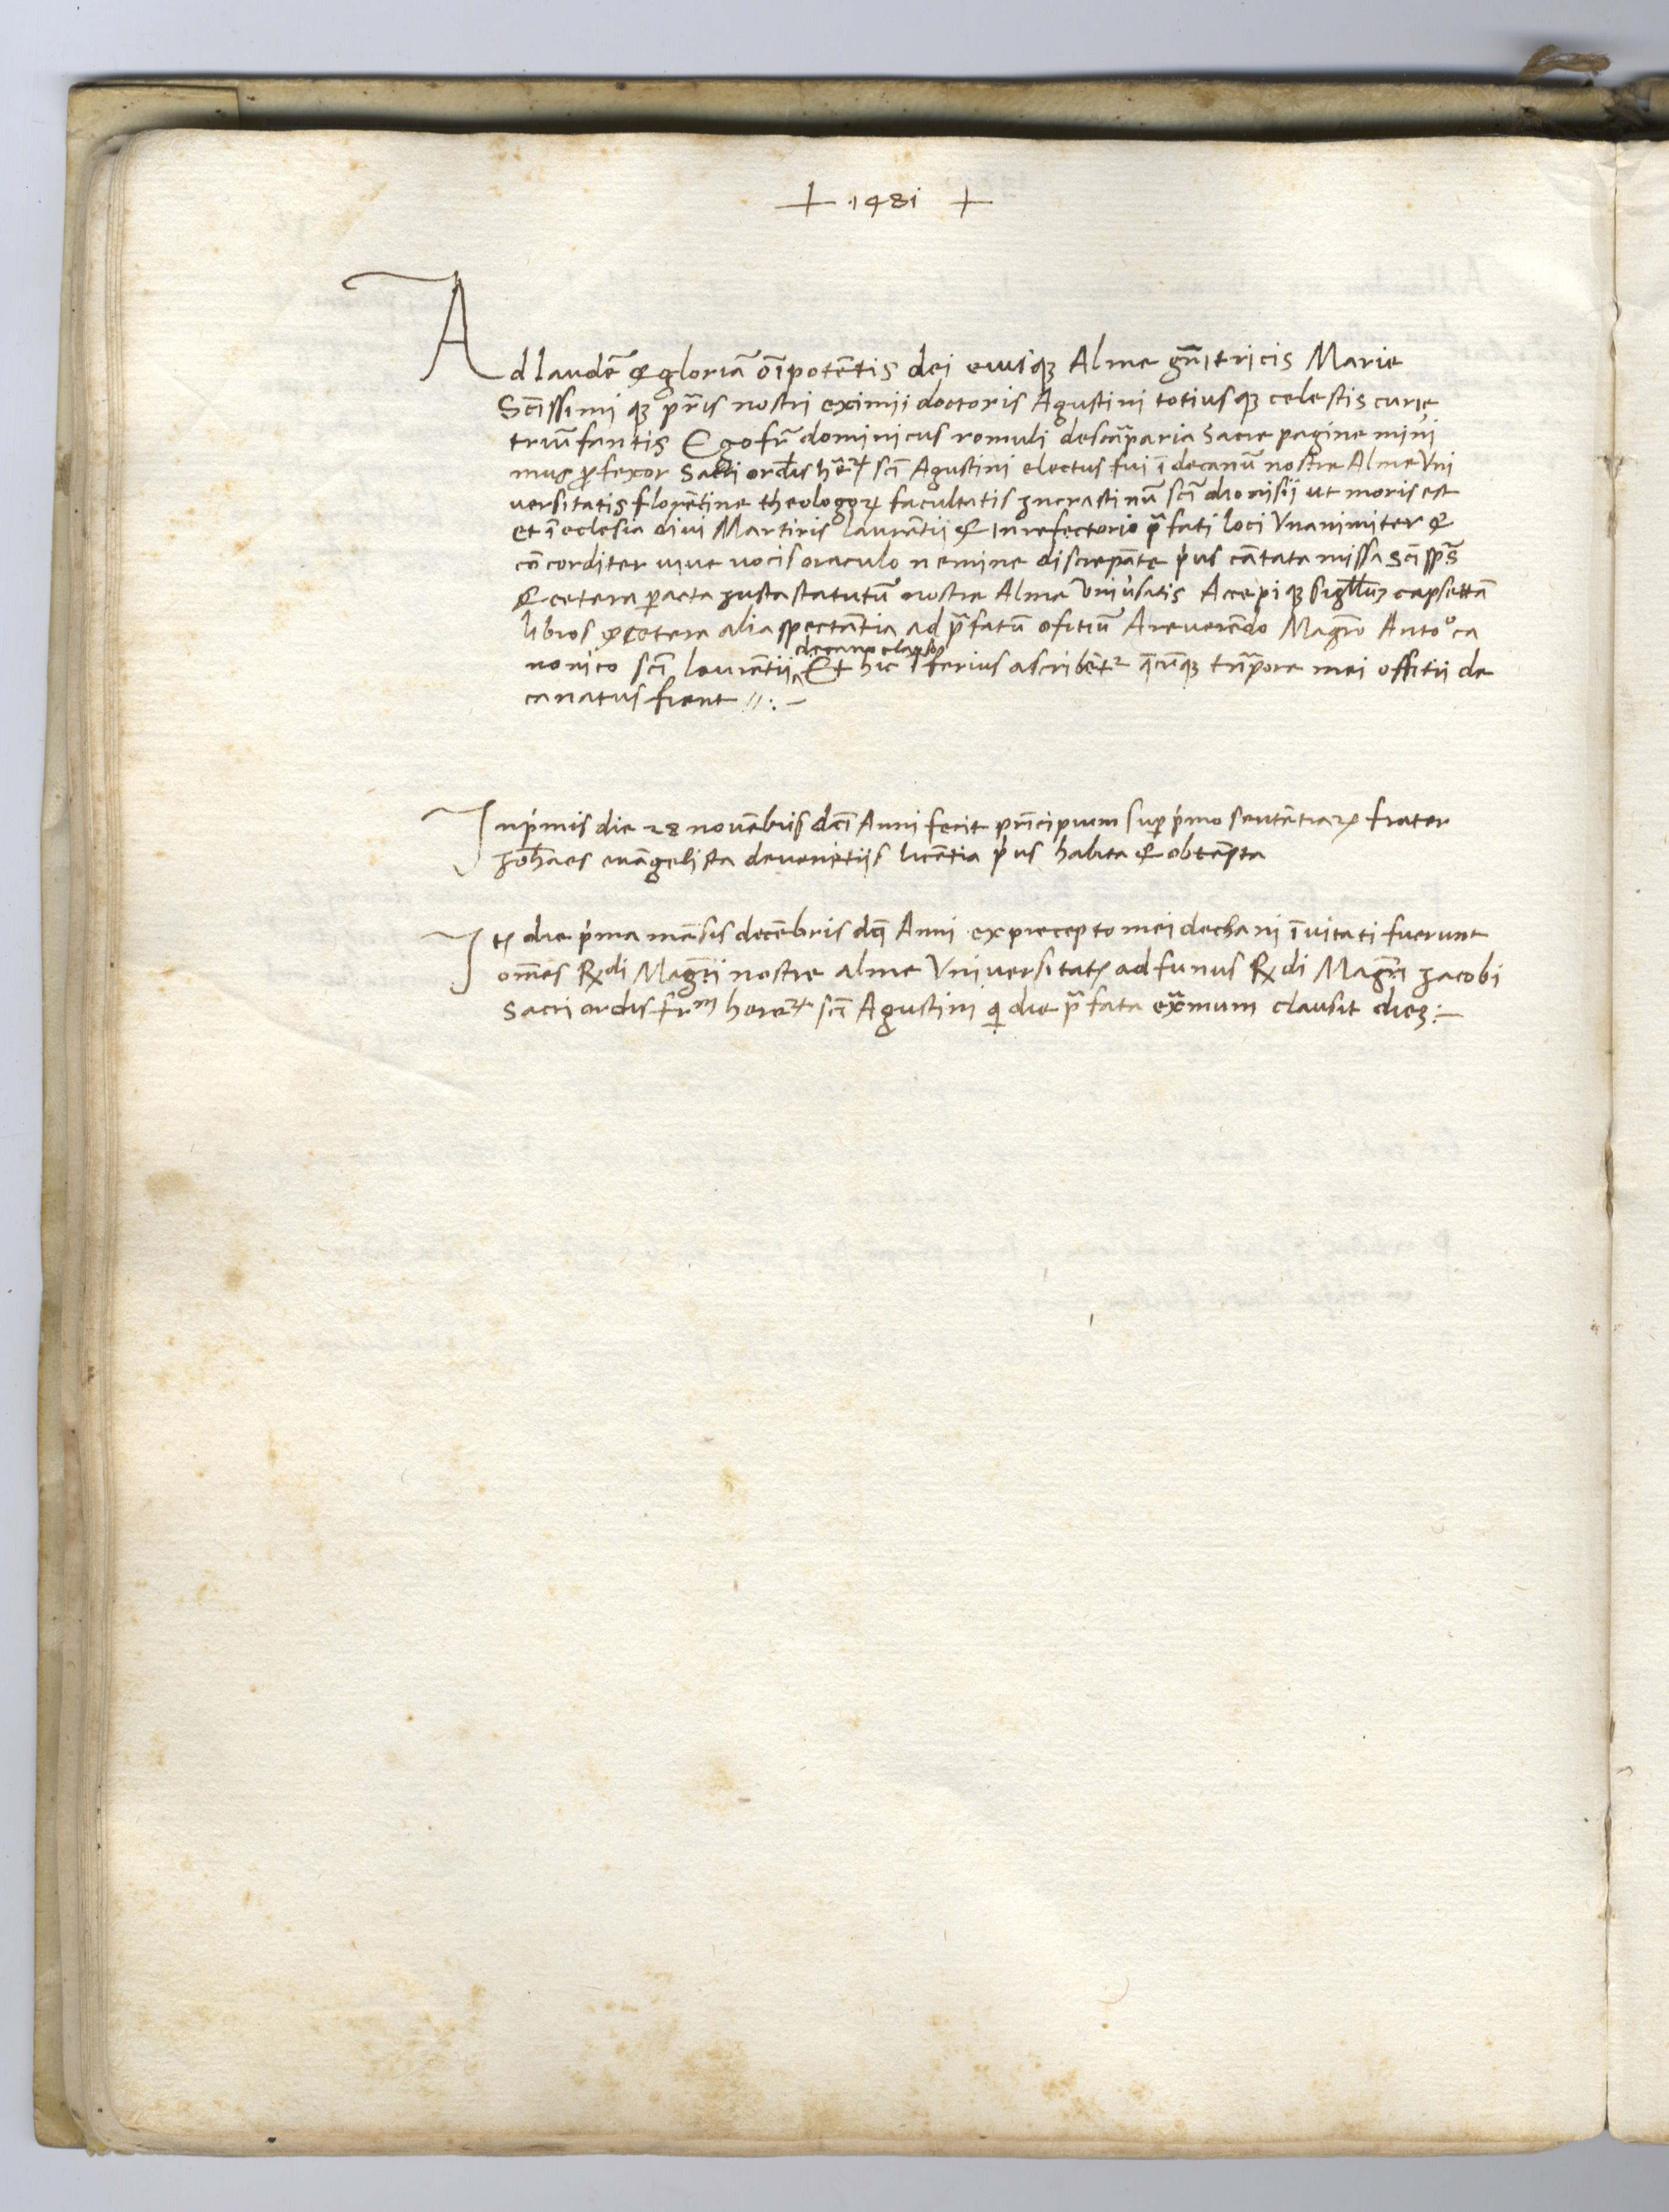 + 1481 +
Ad laudē & gloriā oīpotētis dei eiusqꝫ Alme gn̄itricis Marie
Scīssimi qꝫ pr̄is nostri eximii doctoris Agustini totiusqꝫ celestis curie
triūfantis Ego fr̄ dominicus romuli descāparia Sacre pagine mini
mus ꝓfexor Sacri ordīs hēꝝ scī Agustini electus fui ī decanū nostre Alme Vni
versitatis florētine theologoꝝ facultatis Incrastinū scī dionisii ut moris est
et ī eclesia divi Martiris laurētii & In refectorio p̄fati loci Vnanimiter &
cōcorditer vive vocis oraculo nemine discrepāte p̄us cātata missa Scī sp̄s
& cetera peracta Iusta statutū nostre Alme Vniv̓satis Accepi qꝫ sigillūꝫ capsettā
libros & cetera alia spectātia ad p̄fatū ofitiū A reverēdo Magr̄o Antoᵒ ca
nonico scī laurētii Et hic īferius ascribēt² q̄cūqꝫ tn̄pore mei offitii de
canatus fient //:-
Inp̓mis die 28 novēbris dc̄i Anni fecit prīcipium sup p̓mo sentētiaꝝ frater
Ioh̄aes evāgelista devenetiis licētia p̓us habita & obtēpta
Itꝫ die p̓ma mēsis decēbris dc̄i Anni ex precepto mei dechani īvitati fuerunt
om̄es R̄di Magr̄i nostre alme Vniversitatꝭ ad funus R̄di Magr̄i Iacobi
Sacri ordīs fr̄m hereꝝ scī Agustini qi die p̄fata ex̄mum clausit dieꝫ:-